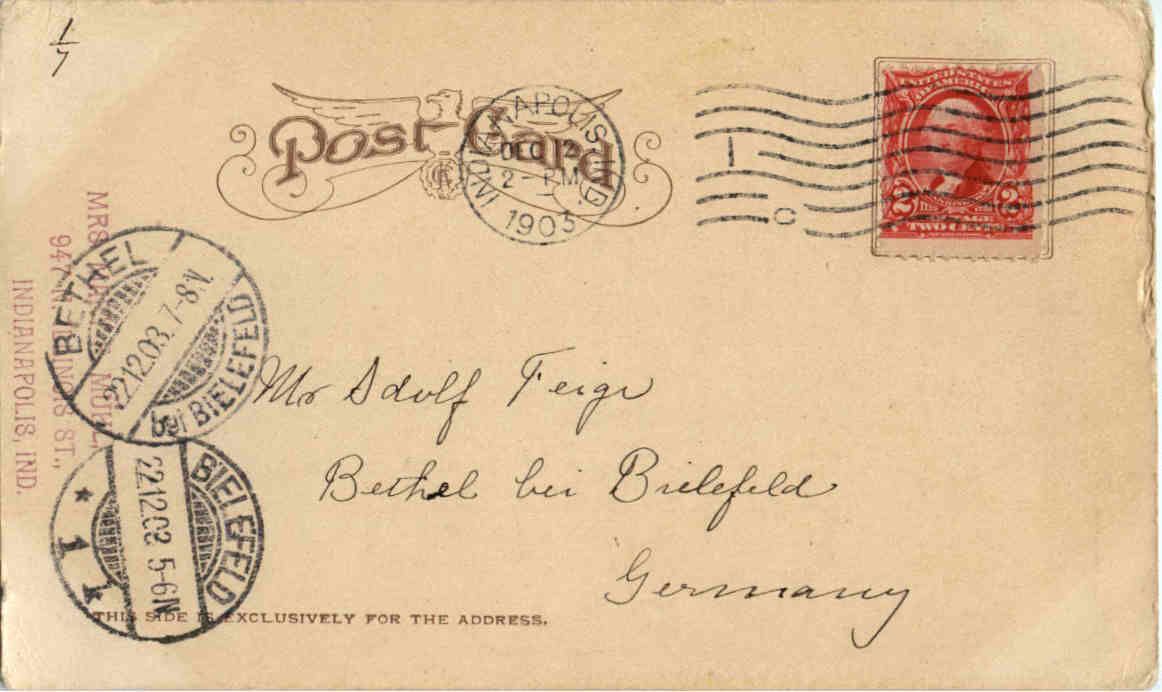 1/7
Post Card
INDIANAPOLIS, IND.
DEC 12
2 - PM
1903
UNITED STATES
OF AMERICA
2 2
POSTAGE
TWO CENTS
MRS.
947 N. ILLINOIS ST.,
INDIANAPOLIS, IND.
BETHEL
22.12.03. 7-8V.
bei BIELEFELD
BIELEFELD
22.12.03 5-6N
* 1 *
Mr Adolf Feige
Bethel bei Bielefeld
Germany
THIS SIDE IS EXCLUSIVELY FOR THE ADDRESS.